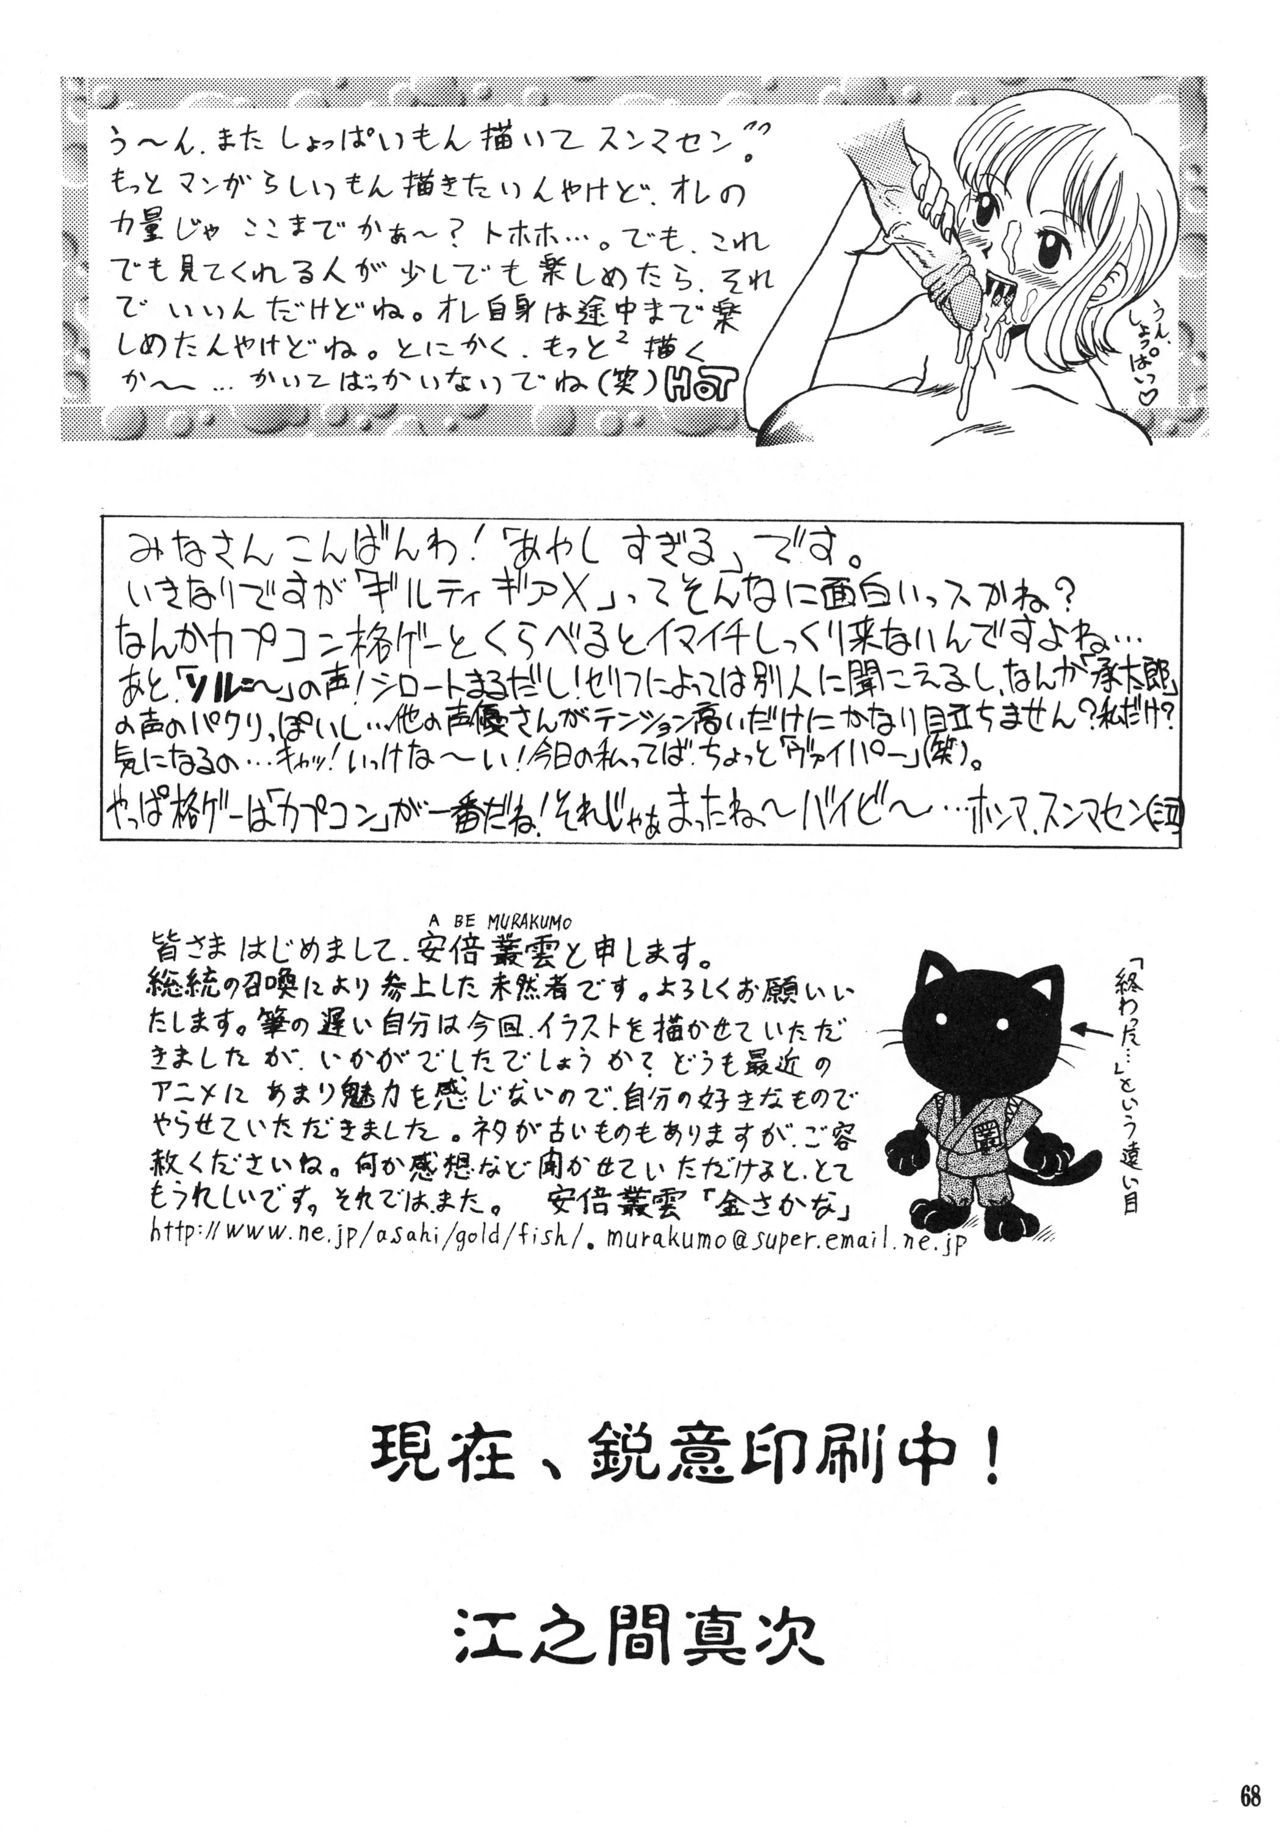 う〜ん、またしょっぱいもん描いてスンマセン。
もっとマンガらしいもん描きたいんやけど、オレの
力量じゃここまでかぁ〜？トホホ…。でも、これ
でも見てくれる人が少しでも楽しめたら、それ
でいいんだけどね。オレ自身は途中まで楽
しめたんやけどね。とにかく、もっと²描く
か〜…かいてばっかいないでね（笑）HOT
うん、
しょっぱいっ♡
みなさんこんばんわ！「あやしすぎる」です。
いきなりですが「ギルティギアX」ってそんなに面白いっスかね？
なんかカプコン格ゲーとくらべるとイマイチしっくり来ないんですよね…
あと、「ソル＝〜」の声！シロートまるだし！セリフによっては別人に聞こえるし、なんか「承太郎」
の声のパクリっぽいし…他の声優さんがテンション高いだけにかなり目立ちません？私だけ？
気になるの…キャッ！いっけな〜い！今日の私ってば、ちょっと「ヴァイパー」（笑）。
やっぱ格ゲーは「カプコン」が一番だね！それじゃぁまったね〜バイビ〜…ホンマ、スンマセン
A BE MURAKUMO
皆さまはじめまして、安倍叢雲と申します。
総統の召喚により参上した未然者です。よろしくお願いい
たします。筆の遅い自分は今回、イラストを描かせていただ
きましたが、いかがでしたでしょうか？どうも最近の
アニメにあまり魅力を感じないので、自分の好きなもので
やらせていただきました。ネタが古いものもありますが、ご容
赦くださいね。何か感想など聞かせていただけると、とて
もうれしいです。それでは、また。 安倍叢雲「金さかな」
http://www.ne.jp/asahi/gold/fish/. murakumo@super.email.ne.jp
「終わった…」という遠い目
叢
現在、鋭意印刷中！
江之間真次
68